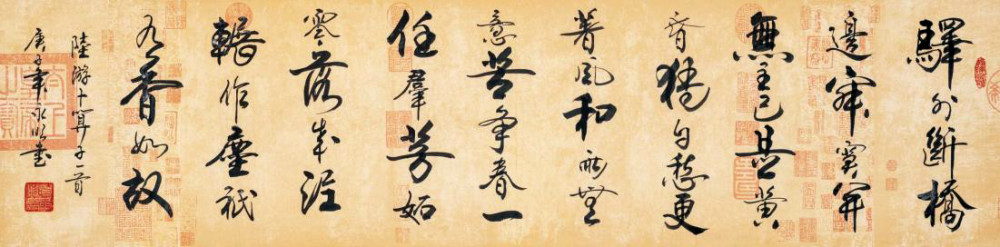 驛外斷橋
邊寂寞開
無主已是黃
昏獨自愁更
著風和雨無
意苦爭春一
任羣芳妬
零落成泥
輾作塵祇
有香如故
陸游卜算子一首
庚子年永書